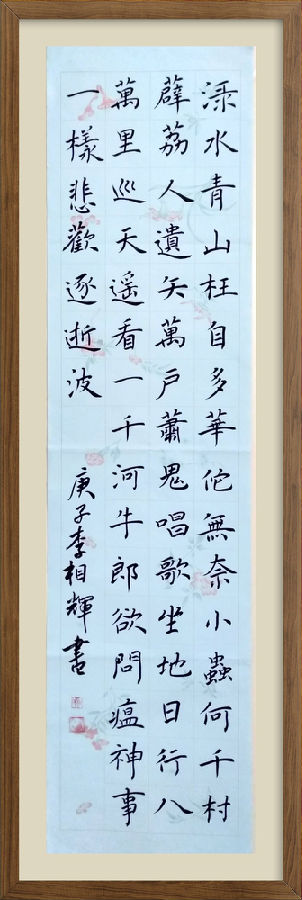 渌水青山枉自多華佗無奈小蟲何千村
薜荔人遺矢萬戶蕭鬼唱歌坐地日行八
萬里巡天遥看一千河牛郎欲問瘟神事
一樣悲歡逐逝波
庚子李相輝書